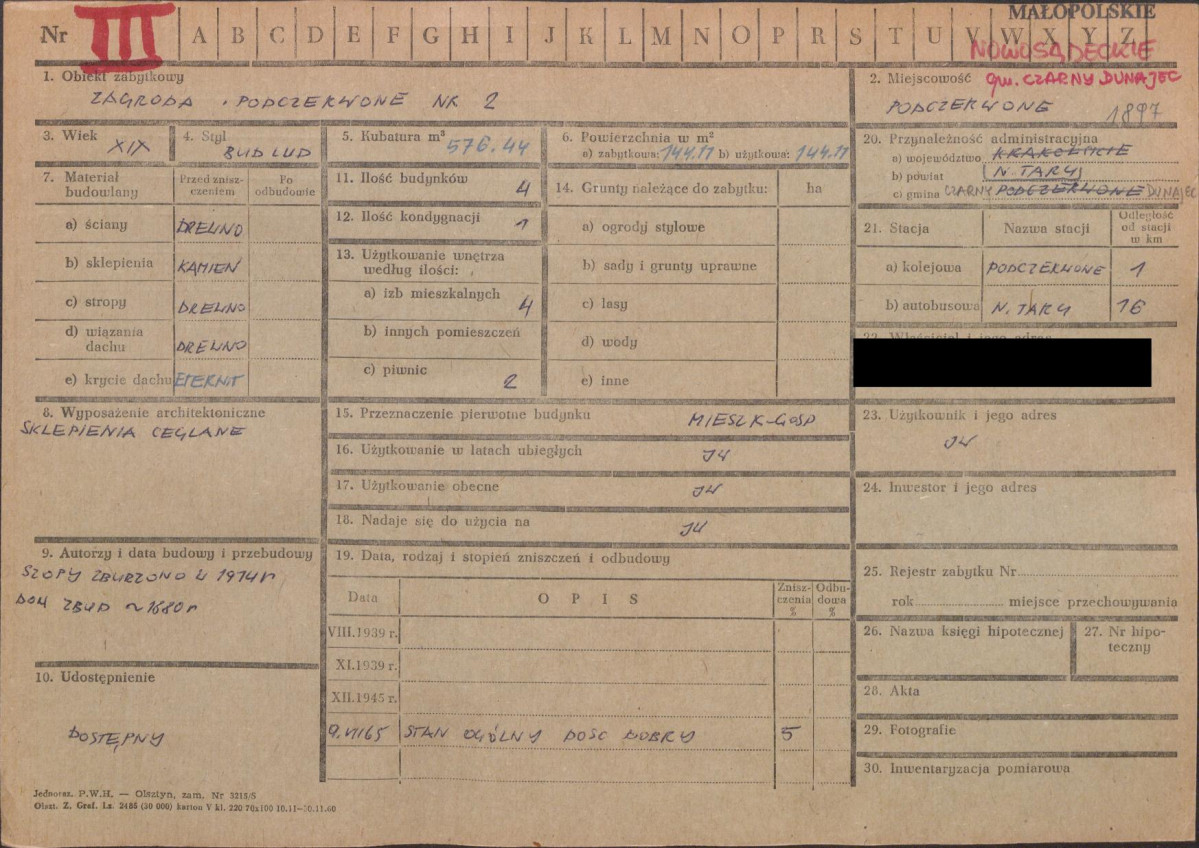 MAŁOPOLSKIE
Nr III A B C D E F G H I J K L M N O P R S T U V W X Y Z
NOWOSĄDECKIE
1. Obiekt zabytkowy
ZAGRODA . PODCZERWONE NR 2
2. Miejscowość gm. CZARNY DUNAJEC
PODCZERWONE 1897
3. Wiek
XIX
4. Styl
BUD LUD
5. Kubatura m³ 576.44
6. Powierzchnia w m²
a) zabytkowa: 144.11 b) użytkowa: 144.11
20. Przynależność administracyjna
a) województwo KRAKOWSKIE
b) powiat N. TARG
c) gmina CZARNY PODCZERWONE DUNAJEC
7. Materiał budowlany
Przed zniszczeniem
Po odbudowie
a) ściany DREWNO
b) sklepienia KAMIEŃ
c) stropy DREWNO
d) wiązania dachu DREWNO
e) krycie dachu ETERNIT
11. Ilość budynków 4
12. Ilość kondygnacji 1
13. Użytkowanie wnętrza według ilości:
a) izb mieszkalnych 4
b) innych pomieszczeń
c) piwnic 2
14. Grunty należące do zabytku: ha
a) ogrody stylowe
b) sady i grunty uprawne
c) lasy
d) wody
e) inne
21. Stacja Nazwa stacji Odległość od stacji w km
a) kolejowa PODCZERWONE 1
b) autobusowa N. TARG 16
22. Właściciel i jego adres
8. Wyposażenie architektoniczne
SKLEPIENIA CEGLANE
15. Przeznaczenie pierwotne budynku MIESZK-GOSP
16. Użytkowanie w latach ubiegłych JW
17. Użytkowanie obecne JW
18. Nadaje się do użycia na JW
23. Użytkownik i jego adres
JW
24. Inwestor i jego adres
9. Autorzy i data budowy i przebudowy
SZOPY ZBURZONO W 1974r
DOM ZBUD ~1680r
19. Data, rodzaj i stopień zniszczeń i odbudowy
Data OPIS Zniszczenia % Odbudowa %
VIII.1939 r.
XI.1939 r.
XII.1945 r.
9.VI65 STAN OGÓLNY DOŚĆ DOBRY 5
25. Rejestr zabytku Nr
rok miejsce przechowywania
26. Nazwa księgi hipotecznej
27. Nr hipoteczny
28. Akta
29. Fotografie
30. Inwentaryzacja pomiarowa
10. Udostępnienie
DOSTĘPNY
Jednoraz. P.W.H. — Olsztyn, zam. Nr 3215/S
Olszt. Z. Graf. Lz. 2486 (30 000) karton V kl. 220 70x100 10.11—30.11.60